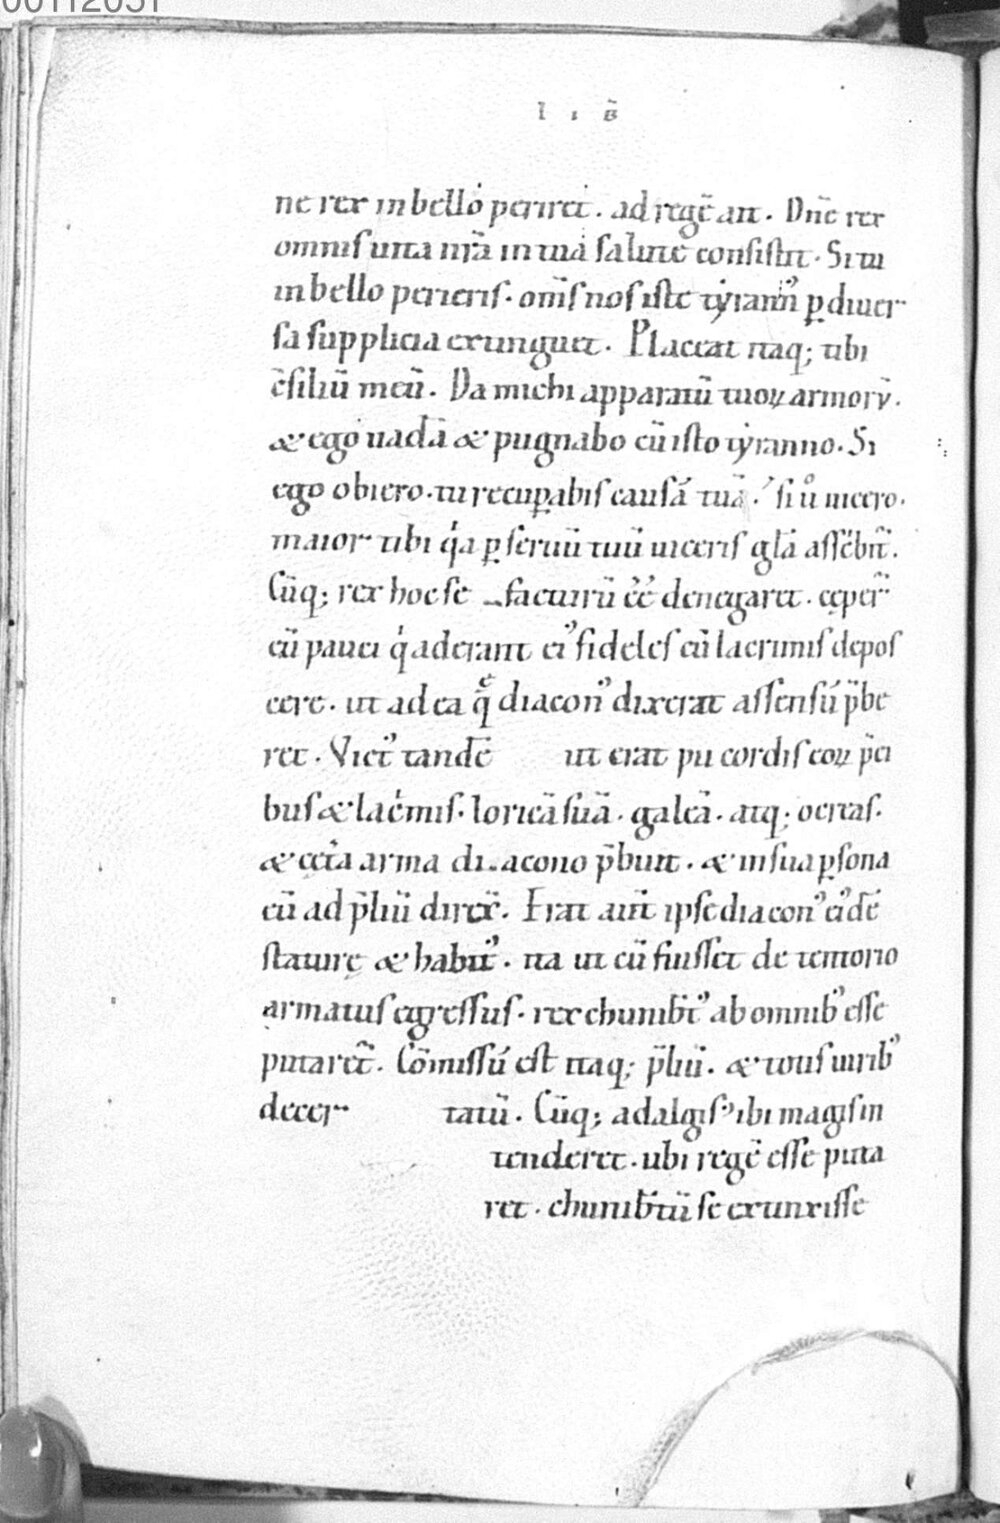 00112051
l ı B̃
ne rex in bello periret. ad regẽ ait. Dñe rex
omnis uita nr̃a in tua salute consistit. Si tu
in bello perieris. om̃s nos iste tyrann᷒ ꝑ diuer
sa supplicia extinguet. Placeat itaq; tibi
c̃siliũ meũ. Da michi apparatũ tuoꝝ armorũ.
& ego uadã & pugnabo cũ isto tyranno. Si
ego obiero. tu recuꝑabis causã tuã. si u̾o uicero.
maior tibi q̾a ꝑ seruũ tuũ uiceris gl̃a asscᷓbit̃.
Cũq; rex hoc se facturũ ẽẽ denegaret. cęper̃
cũ pauci q̾ aderant ei᷒ fideles cũ lacrimis depos
cere. ut ad ea q̃ę diacon᷒ dixerat assensũ p̃be
ret. Vict᷒ tandẽ ut erat pii cordis eoꝝ p̃ci
bus & lac̾mis. loricã suã. galeã. atq; ocreas.
& cęt̃a arma diacono p̃buit. & in sua ꝑsona
eũ ad p̃liũ direx̃. Erat aut̃ ipse diacon᷒ ei᷒dẽ
staturę & habit᷒. ita ut cũ fuisset de tentorio
armatus egressus. rex chunibt᷒ ab omnib᷒ esse
putaret̃. Cõmissũ est itaq; p̃liũ. & totis uirib᷒
decer tatũ. Cũq; adalgis᷒ ibi magis in
tenderet. ubi regẽ esse puta
ret. chunibt̃ũ se extinxisse